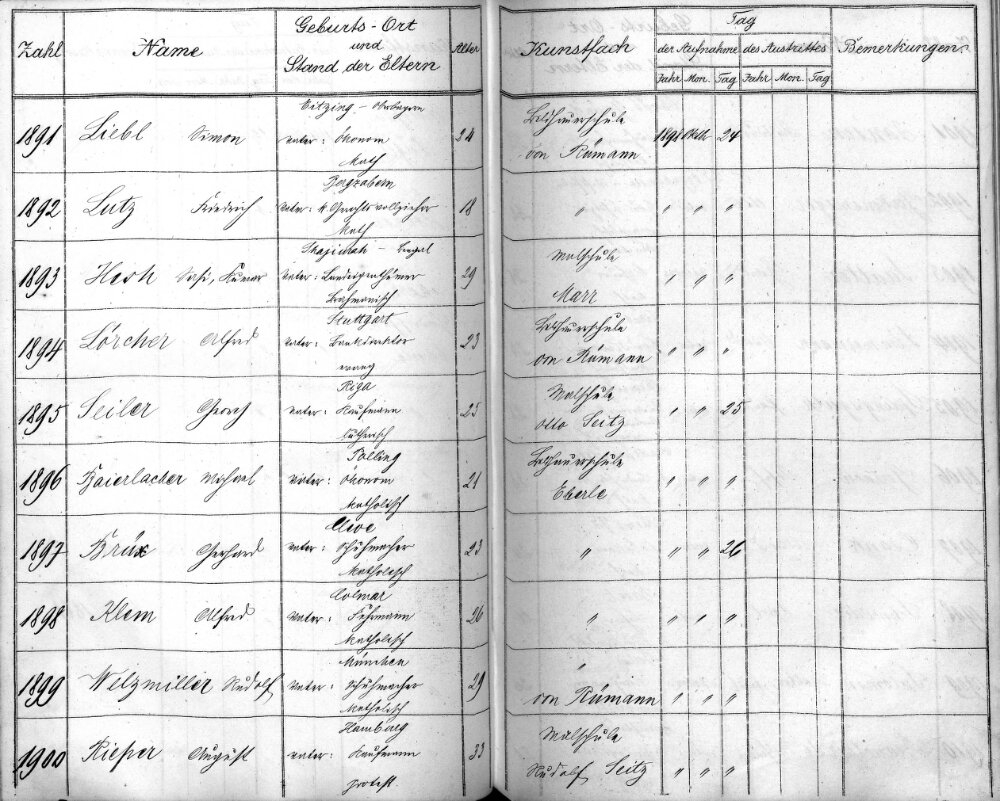 Zahl Name Geburts-Ort und Stand der Eltern Alter Kunstfach Tag der Aufnahme des Austrittes Bemerkungen.
Jahr Mon. Tag Jahr Mon. Tag
1891 Liebl Simon Oberbayern
Vater: Ökonom 24 Bildhauerschule von Rümann 1898 Okt. 24
Kath.
1892 Lutz Friedrich Bergzabern
Vater: K. Gerichtsvollzieher 18 " " " "
Kath.
1893 Hesh Sosi, Kumar Bengal
Vater: Landeigenthümer 29 Malschule Marr " " "
Brahmanisch
1894 Lörcher Alfred Stuttgart
Vater: Bankdirektor 23 Bildhauerschule von Rümann " " "
evang
1895 Seiler Georg Riga
Vater: Kaufmann 25 Malschule Otto Seitz " " 25
lutherisch
1896 Baierlacher Michael Polling
Vater: Ökonom 21 Bildhauerschule Eberle " " "
Katholisch
1897 Brüx Gerhard Cleve
Vater: Schuhmacher 23 " " " 26
Katholisch
1898 Klem Alfred Colmar
Vater: Fuhrmann 26 " " " "
Katholisch
1899 Welzmiller Rudolf München
Vater: Schuhmacher 29 " von Rümann " " "
Katholisch
1900 Rieper August Hamburg
Vater: Kaufmann 33 Malschule Rudolf Seitz " " "
protest.